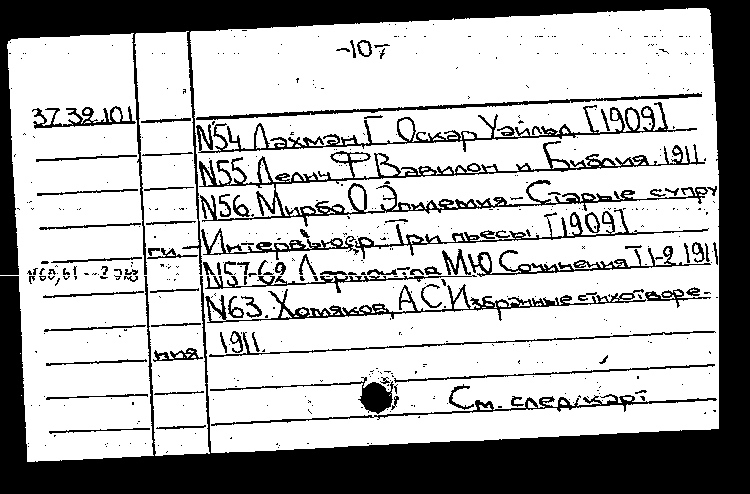 -107
37.39.101
N54 Лахман, Г. Оскар Уайльд. [1909].
N55 Делич Ф. Вавилон и Библия. 1911
N56. Мирбо, О. Эпидемия-Старые супру
ги.-Интервьюер-Три пьесы. [1909].
N60,61--2 экз N57-62. Лермонтов, М.Ю. Сочинения. Т.1-2. 1911
N63. Хомяков, А.С. Избранные стихотворе-
ния 1911.
См. след/карт